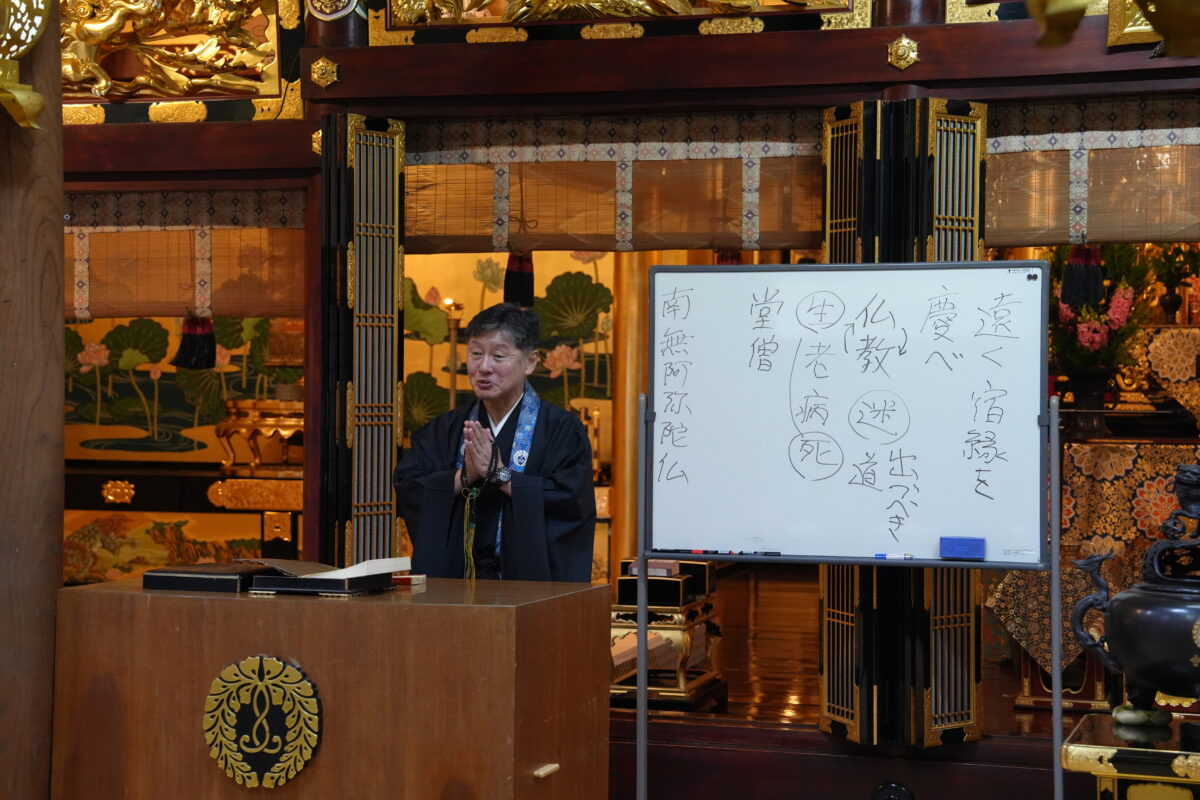 遠く宿縁を
慶べ
仏教
迷
出づべき
道
生老病死
堂僧
南無阿弥陀仏